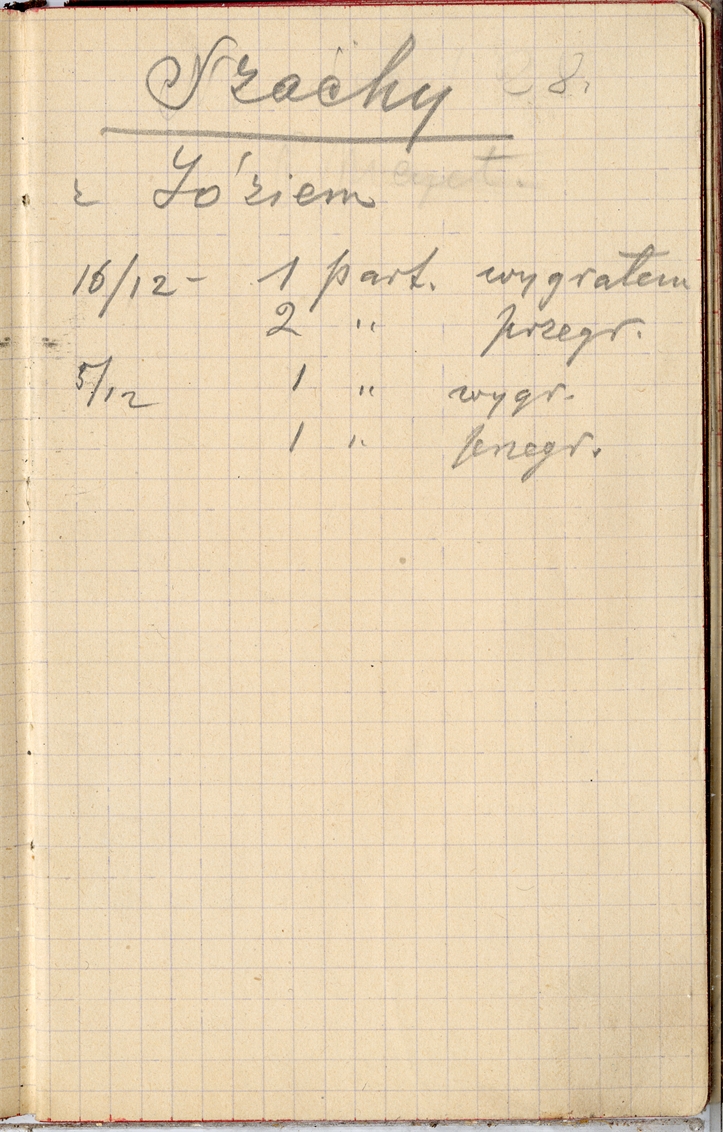 Szachy 8.
z Józiem
16/12 - 1 part. wygrałem
2 " przegr.
5/12 1 " wygr.
1 " przegr.